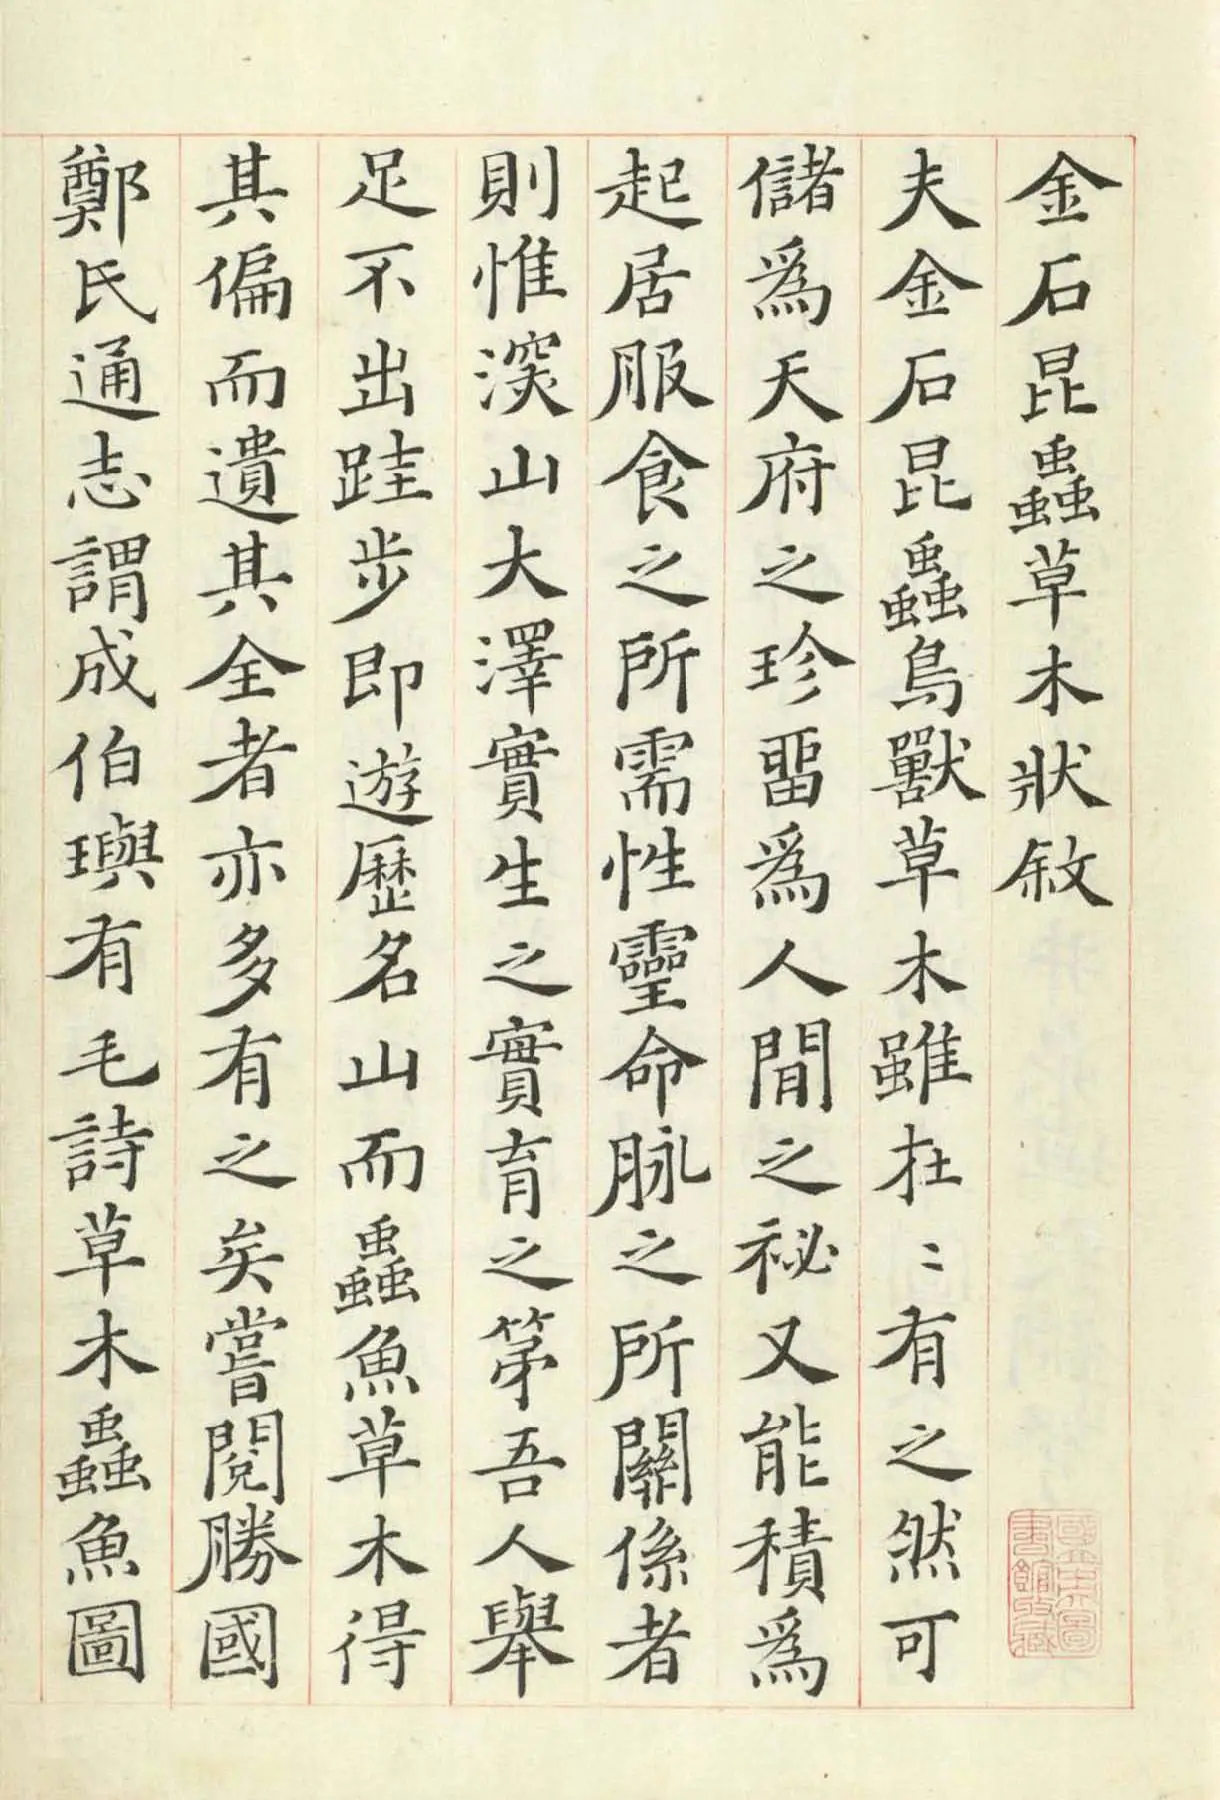 金石昆蟲草木狀敘
夫金石昆蟲鳥獸草木雖在〻有之然可
儲爲天府之珍畱爲人閒之祕又能積爲
起居服食之所需性靈命脉之所關係者
則惟深山大澤實生之實育之第吾人舉
足不出跬步即遊歷名山而蟲魚草木得
其偏而遺其全者亦多有之矣嘗閱勝國
鄭氏通志謂成伯璵有毛詩草木蟲魚圖
國立中央圖書館收藏